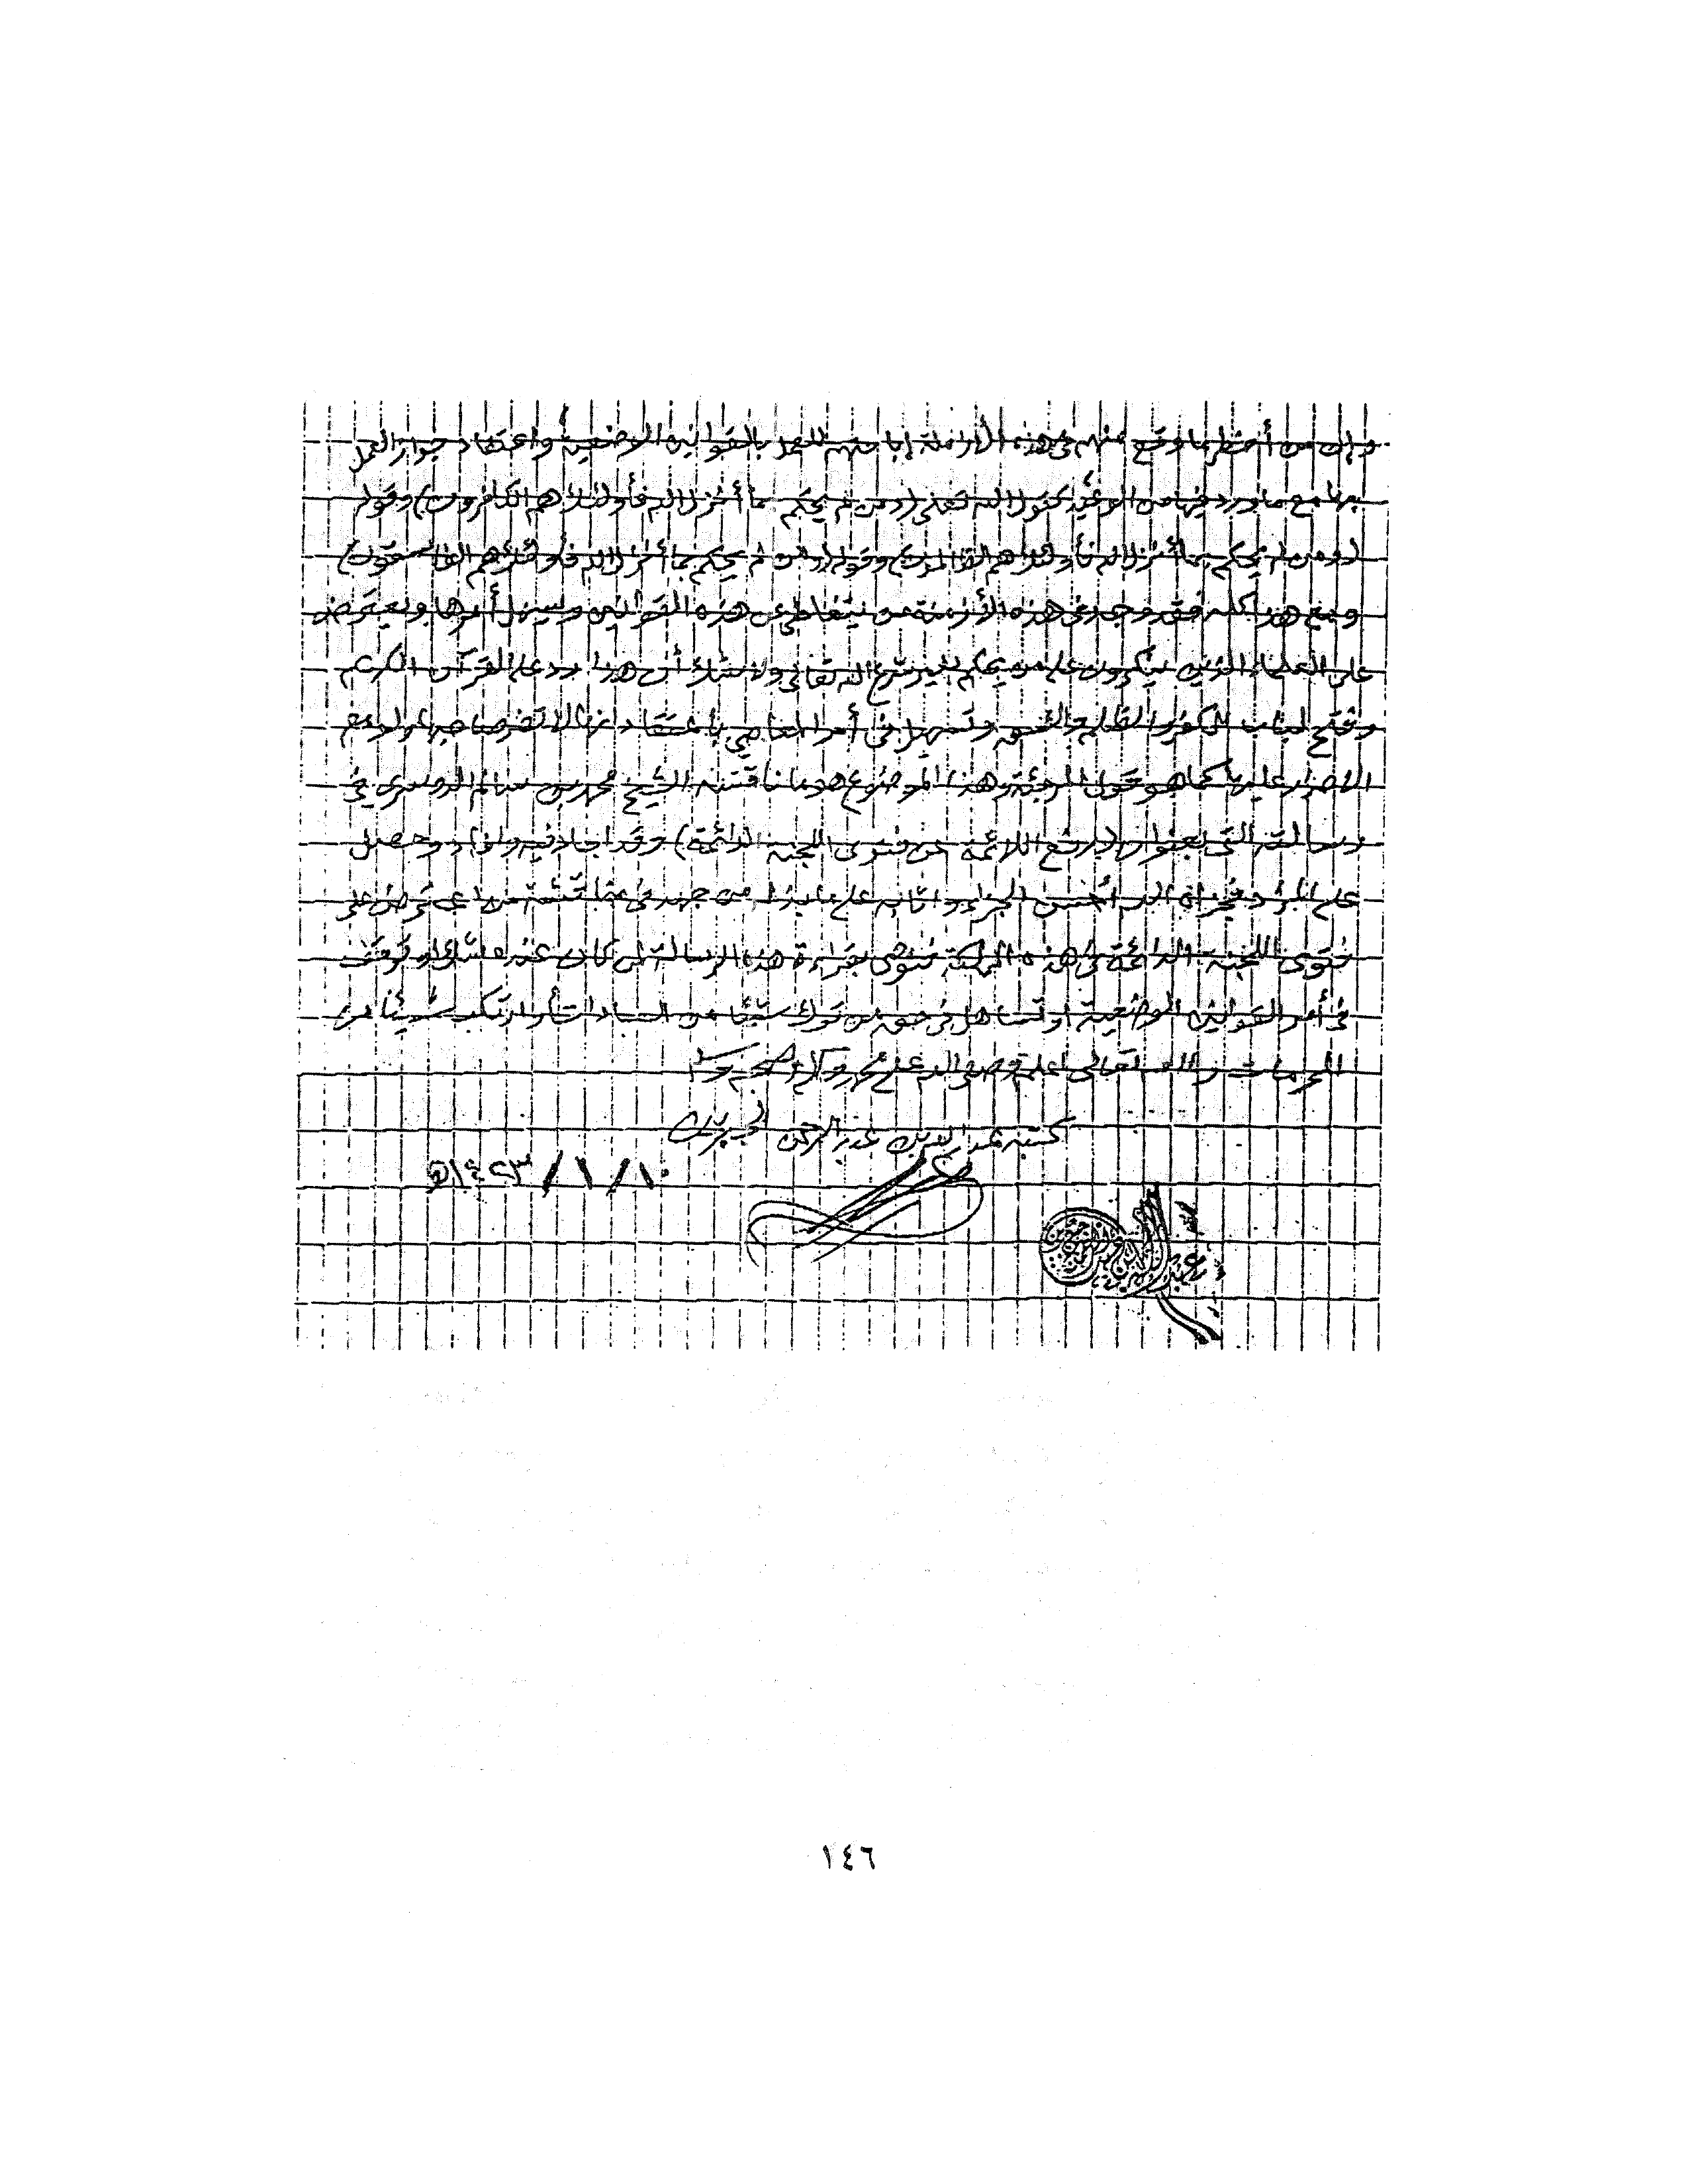 وإن من أخطر ما وقع منهم في هذه الأزمنة إباحتهم للعمل بالقوانين الوضعية واعتقاد جواز العمل
بها مع ما ورد فيها من الوعيد كقول الله تعالى (ومن لم يحكم بما أنزل الله فأولئك هم الكافرون) وقوله
(ومن لم يحكم بما أنزل الله فأولئك هم الظالمون) وقوله (ومن لم يحكم بما أنزل الله فأولئك هم الفاسقون)
ومع هذا كله فقد وجد في هذه الأزمنة من يتغاضى عن هذه القوانين ويسهل أمرها ويعترض
على العلماء الذين ينكرون على من يحكم بغير شرع الله تعالى ولا شك أن هذا رد على القرآن الكريم
وفتح لباب الكفر والظلم والفسق وتسهيل في أمر المعاصي باعتقاد انها لا تضر صاحبها ولو مع
الاصرار عليها كما هو قول المرجئة وهذا الموضوع هو ما ناقشه الشيخ محمد بن سالم الدوسري في
رسالته التي بعنوان (رفع اللائمة عن فتوى اللجنة الدائمة) وقد اجاد فيه وافاد وحصل
على المراد فجزاه الله أحسن الجزاء واثابه على ما بذله من جهد في مناقشة من اعترض على
فتوى اللجنة الدائمة في هذه المملكة فنوصي بقراءة هذه الرسالة لمن كان عنده شك او توقف
في أمر القوانين الوضعية او تساهل في حق من ترك شيئا من العبادات أو ارتكب شيئا من
المحرمات والله تعالى اعلم وصلى الله على محمد وآله وصحبه وسلم
كتبه عبد الله بن عبد الرحمن الجبرين
١٠/١/١٤٢٣هـ
١٤٦